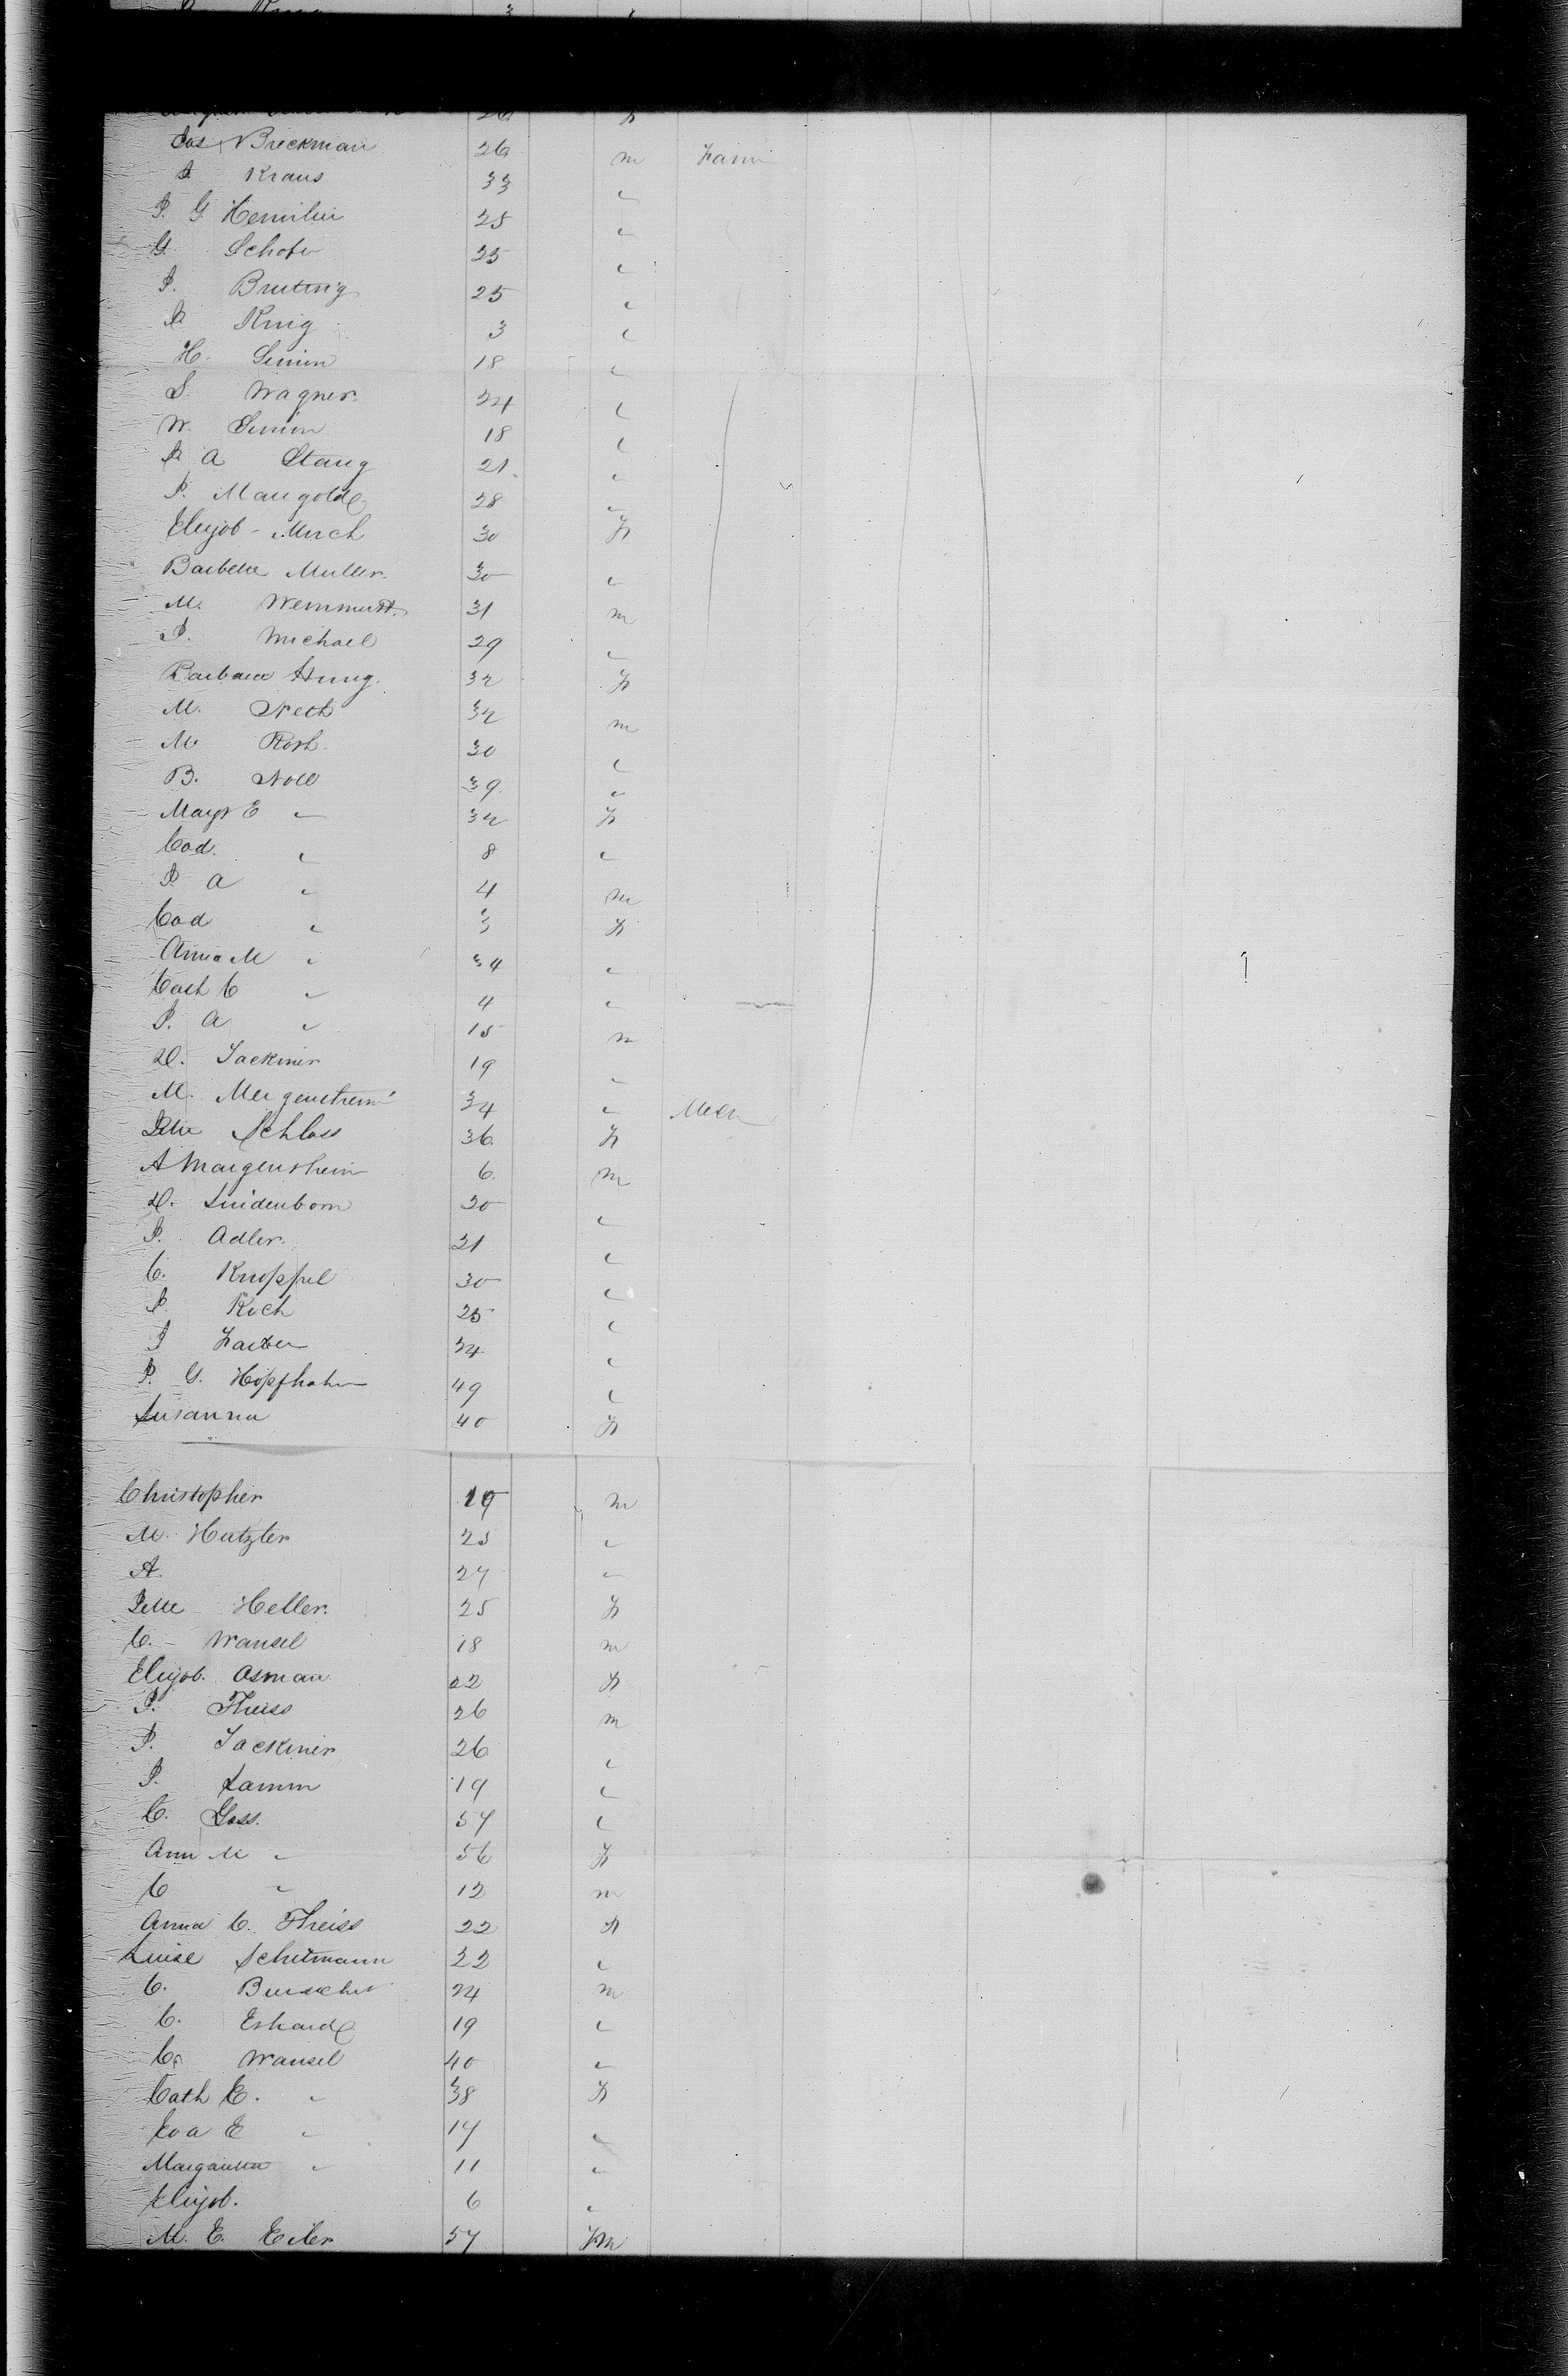 26
Cas Brickman 26 m Farm
Kraus 33 "
P. G 25 "
G. Schofer 25 "
P. Bruting 25 "
3 "
H. Simon 18 "
S. Wagner. 24 "
W. Simon 18 "
P A Stang 21 "
P. Mangold 28 "
Elizab - Mirch 30 F
Barbette Muller. 30 "
M. 31 m
P. Michael 29 "
Barbara Hung. 32 F
M. Neth 32 m
M. 30 "
B. Noll 39 "
Magt E " 32 F
Cad. " 8 "
P. A " 4 m
Cad " 3 F
Anna M " 34 "
Cath C " 4 "
P. A " 15 m
D. Jackmer 19 "
M. 34 " Mech
Schloss 36 F
A Morgenshein 6 m
D. Lindenborn 20 "
P. Adler. 21 "
C. Knoppel 30 "
P. Koch 25 "
P Farber 34 "
P. G. Hopfhahn 49 "
Susanna 40 F
Christopher 19 m
M. Hutzler 25 "
A. 27 "
Jette Heller. 25 F
C. - Wansel 18 m
Elizab. Osman 22 F
P. Theiss 26 m
P. Jackmer 26 "
P. Lamm 19 "
C. Goss. 57 "
Ann M " 56 F
C " 12 m
Anna C. Theiss 22 F
Luise Schitmann 22 "
C. 24 m
C. Erhard 19 "
C. Wansel 40 "
Cath E. " 38 F
Eva E " 17 "
Margaretta " 11 "
Elizab. 6 "
M. E. Eiler 57 Fm